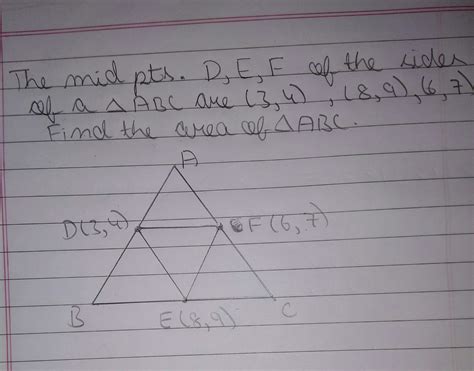 The mid pts. D, E, F of the sides
of a △ABC are (3,4), (8,9), (6,7)
Find the area of △ABC.
A
D(3,4)
F(6,7)
B
E(8,9)
C